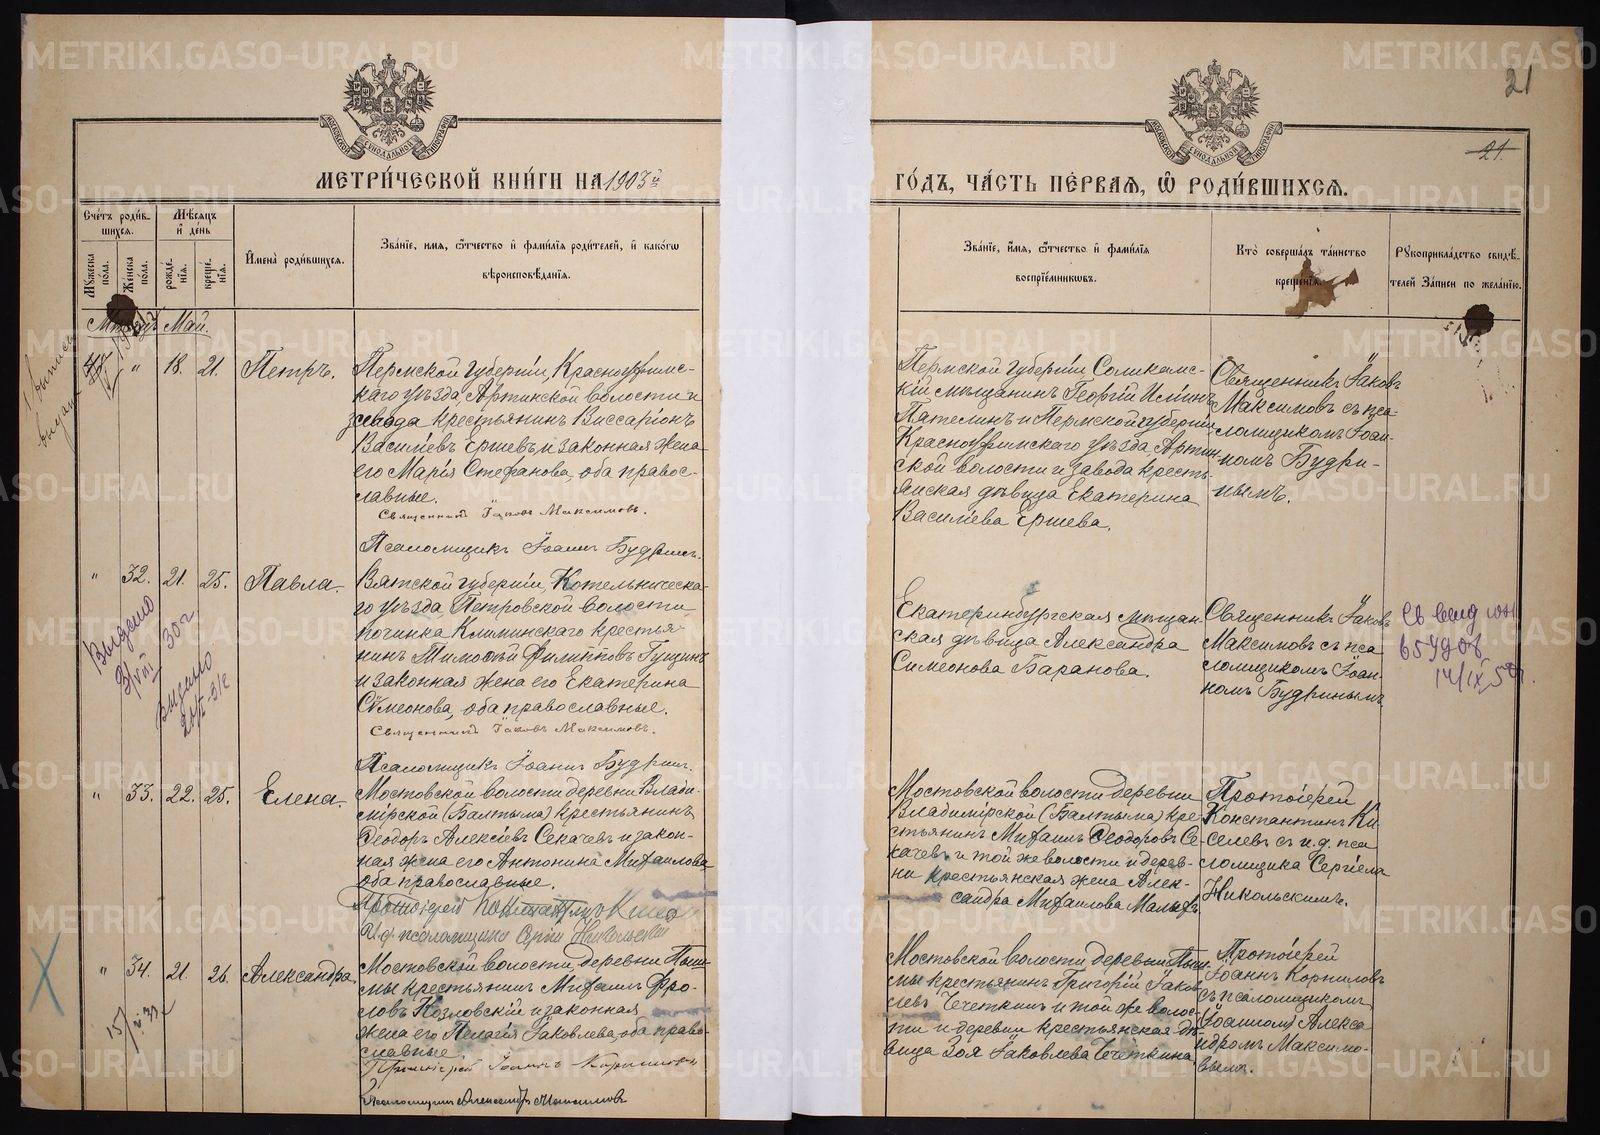 21
21.
МЕТРИ́ЧЕСКОЙ КНИ́ГИ НА 1903й
ГО́ДЪ, ЧА́СТЬ ПЕ́РВАЯ, Ѿ РОДИ́ВШИХСЯ.
Сче́тъ роди́вшихся.
Му́жеска по́ла.
Же́нска по́ла.
Мѣ́сяцъ и҆ де́нь
рожде́нїя.
креще́нїя.
И҆мена̀ роди́вшихся.
Зва́нїе, и҆мя, ѻ҆́тчество и҆ фами́лїя роди́телей, и҆ како́гѡ
вѣроисповѣ́данїя.
Зва́нїе, и҆́мя, ѻ҆́тчество и҆ фами́лїя
воспрїе́мникѡвъ.
Кто̀ соверша́лъ та́инство
креще́нїя.
Рукоприкла́дство свидѣ́-
телей за́писи по жела́нїю.
Май.
" 18. 21. Петръ.
Пермской губерніи, Красноуфимс-
каго уѣзда, Артинской волости и
завода крестьянинъ Виссаріонъ
Васильевъ Ершевъ и законная жена
его Марія Стефанова, оба правос-
лавные.
Священникъ Іаковъ Максимовъ.
Псаломщикъ Іоаннъ Будринъ.
Пермской губерніи Соликамс-
кій мѣщанинъ Георгій Ильинъ
Пателинъ и Пермской губерніи
Красноуфимскаго уѣзда, Артин-
ской волости и завода кресть-
янская дѣвица Екатерина
Васильева Ершева.
Священникъ Іаковъ
Максимовъ съ пса-
ломщикомъ Іоан-
номъ Будри-
нымъ.
" 32. 21. 25. Павла.
Вятской губерніи, Котельническа-
го уѣзда, Петровской волости
починка Климинскаго крестья-
нинъ Тимоѳей Филипповъ Гущинъ
и законная жена его Екатерина
Симеонова, оба православные.
Священникъ Іаковъ Максимовъ.
Псаломщикъ Іоаннъ Будринъ.
Екатеринбургская мѣщан-
ская дѣвица Александра
Симеонова Баранова.
Священникъ Іаковъ
Максимовъ съ пса
ломщикомъ Іоан-
номъ Будринымъ.
Выдано
" 33. 22. 25. Елена.
Мостовской волости деревни Влади-
мірской (Балтыма) крестьянинъ
Ѳеодоръ Алексѣевъ Секачевъ и закон-
ная жена его Антонина Михаилова,
оба православные.
И. д. псаломщика Сергій Никольскій
Мостовской волости деревни
Владимірской (Балтыма) кре-
стьянинъ Михаилъ Ѳеодоровъ Се-
качевъ и той же волости и дерев-
ни крестьянская жена Алек-
сандра Михаилова
Протоіерей
Константинъ Ки-
селевъ съ и. д. пса
ломщика Сергіемъ
Никольскимъ.
" 34. 21. 26. Александра.
Мостовской волости, деревни Пыш-
мы крестьянинъ Михаилъ Фро-
ловъ Козловскій и законная
жена его Пелагія Іаковлева, оба право-
славные.
Протоіерей Іоаннъ Корниловъ
Псаломщикъ Александръ Максимовъ
Мостовской волости, деревни Пыш-
мы крестьянинъ Григорій Іаков-
левъ Четкинъ и той же волос-
ти и деревни крестьянская дѣ-
вица Зоя Іаковлева Четкина.
Протоіерей
Іоаннъ Корниловъ
съ псаломщикомъ
Алекса
ндромъ Максимо-
вымъ.